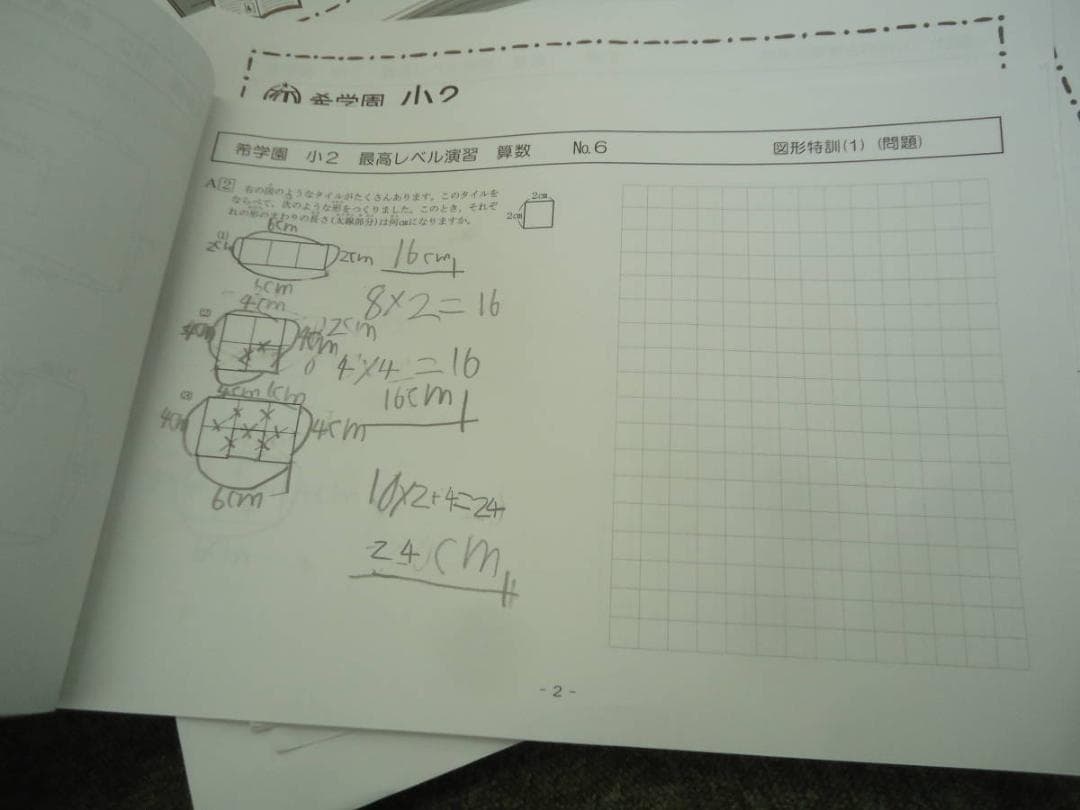 希学園 小2
希学園 小2 最高レベル演習 算数 No.6 図形特訓(1) (問題)
A2 右の図のようなタイルがたくさんあります。このタイルを
ならべて、次のような形をつくりました。このとき、それぞ
れの形のまわりの長さ(太線部分)は何cmになりますか。
2cm
2cm
(1)
6cm
2cm
2cm
16cm
6cm
8×2=16
(2)
4cm
4cm
2cm
4×4=16
16cm
(3)
4cm
4cm
6cm
10×2+4=24
24cm
- 2 -